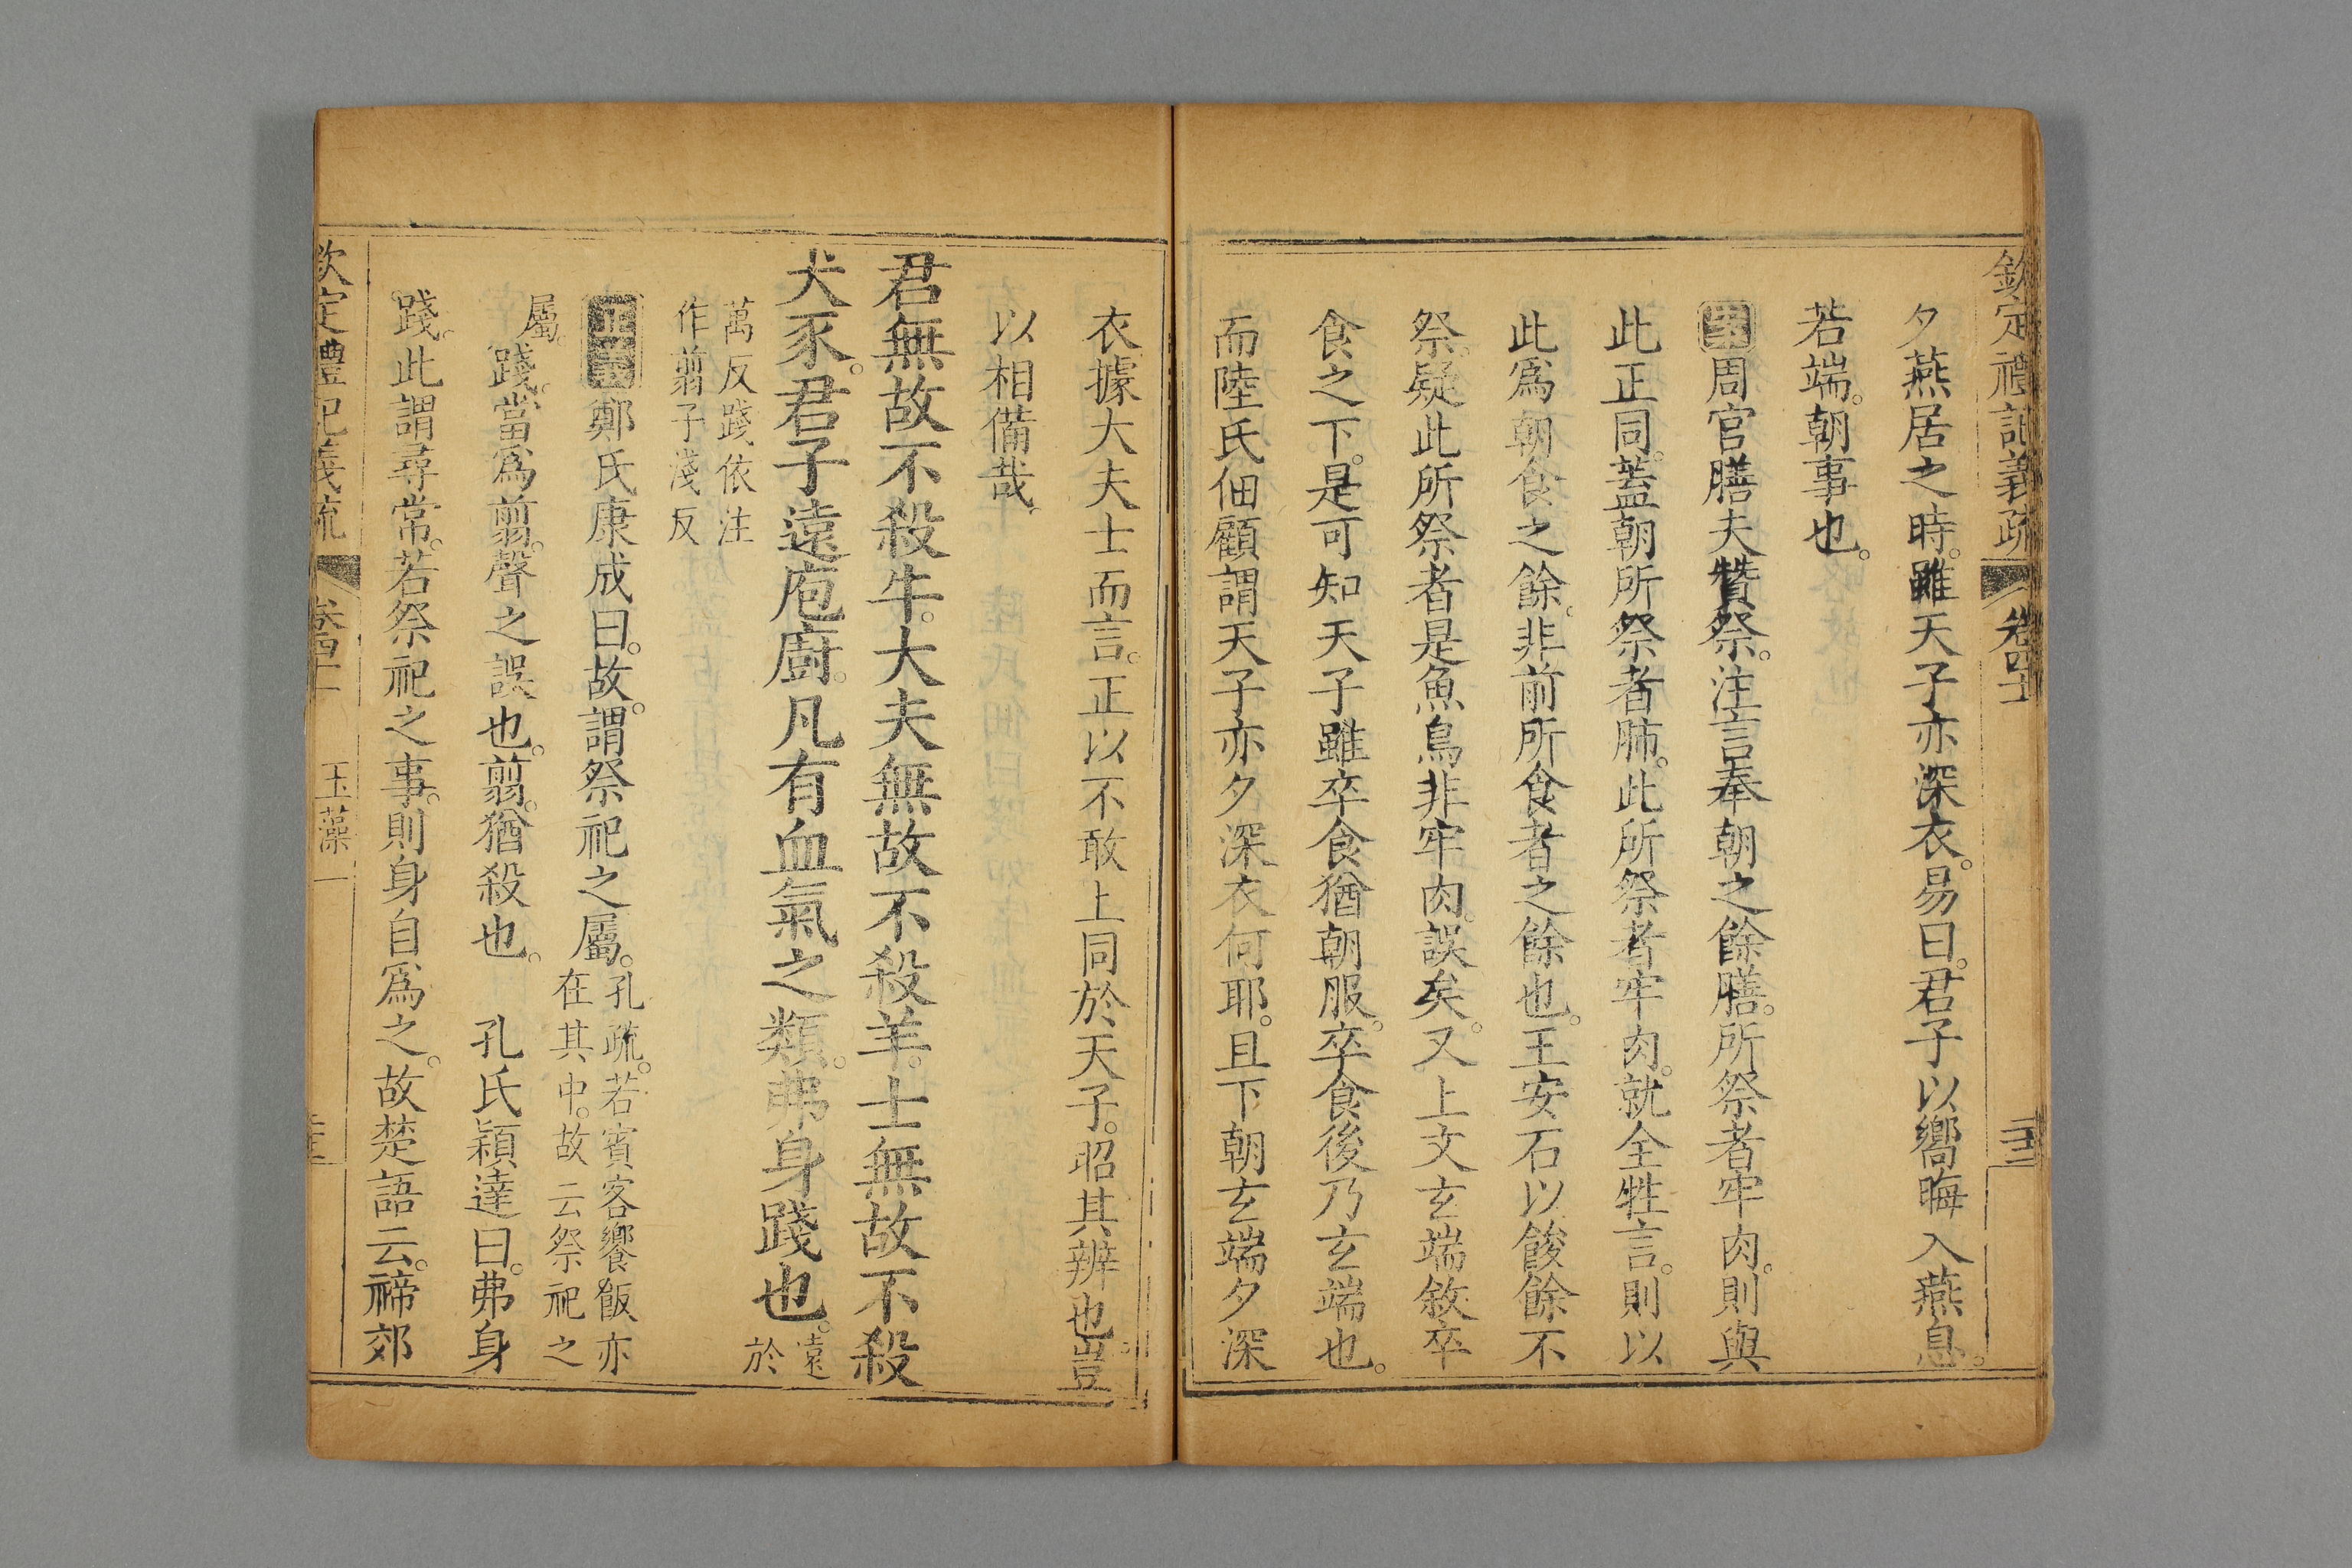 欽定禮記義疏 卷四十一
夕燕居之時。雖天子亦深衣。易曰。君子以嚮晦入燕息。
若端。朝事也。
周官膳夫贊祭。注言奉朝之餘膳。所祭者牢肉。則與
此正同。蓋朝所祭者肺。此所祭者牢肉。就全牲言。則以
此爲朝食之餘。非前所食者之餘也。王安石以餕餘不
祭。疑此所祭者是魚鳥非牢肉。誤矣。又上文玄端敘卒
食之下。是可知天子雖卒食猶朝服。卒食後乃玄端也。
而陸氏佃顧謂天子亦夕深衣何耶。且下朝玄端夕深
衣據大夫士而言。正以不敢上同於天子。昭其辨也。豈
以相備哉。
君無故不殺牛。大夫無故不殺羊。士無故不殺
犬豕。君子遠庖廚。凡有血氣之類。弗身踐也。遠於
萬反踐依注
作翦子淺反
正義鄭氏康成曰。故。謂祭祀之屬。孔疏。若賓客饗飯亦
在其中。故云祭祀之
屬。踐。當爲翦。聲之誤也。翦。猶殺也。 孔氏穎達曰。弗身
踐。此謂尋常。若祭祀之事。則身自爲之。故楚語云。禘郊
欽定禮記義疏 卷四十一 玉藻一